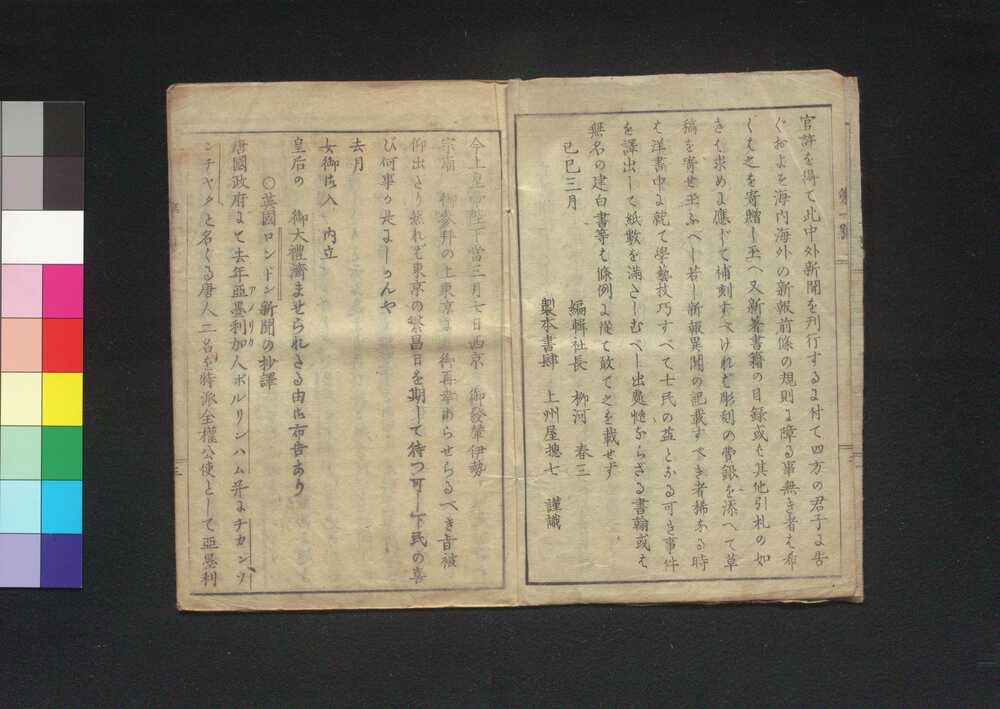 官許を得て此中外新聞を刊行するに付て四方の君子に告
ぐおよそ海内海外の新報前條の規則に障る事無き者は希
くは之を寄贈し玉へ又新著書籍の目録或は其他引札の如
きは求めに應じて補刻すべけれど彫刻の費銀を添へて草
稿を寄せ玉ふべし若し新報異聞の記載すべき者稀なる時
は洋書中に就て學藝技巧すべて士民の益となる可き事件
を譯出して紙數を滿さしむべし出處慥ならざる書翰或は
無名の建白書等は條例に從て敢て之を載せず
已巳三月
編輯社長 柳河 春三
製本書肆 上州屋摠七 謹識
第一號
今上皇帝陛下當三月七日西京 御發輦伊勢
宗廟 御參拜の上東京に 御再幸あらせらるべき旨被
仰出たり然れど東京の繁昌日を期して待つ可し下民の喜
び何事か是にしかんや
去月
女御御入 内立
皇后の 御大禮濟ませられたる由御布告あり
○英國ロンドン新聞の抄譯
唐國政府にて去年亞墨利加人ボルリンハム并にチカンソ
アメリカ
ンチヤクと名くる唐人二名を特派全權公使として亞墨利